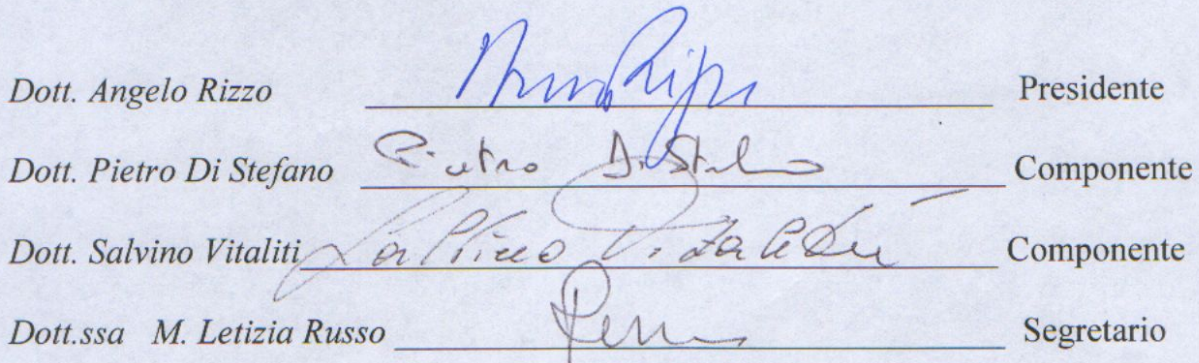 Dott. Angelo Rizzo Presidente
Dott. Pietro Di Stefano Pietro Di Stefano Componente
Dott. Salvino Vitaliti Salvino Vitaliti Componente
Dott.ssa M. Letizia Russo Segretario